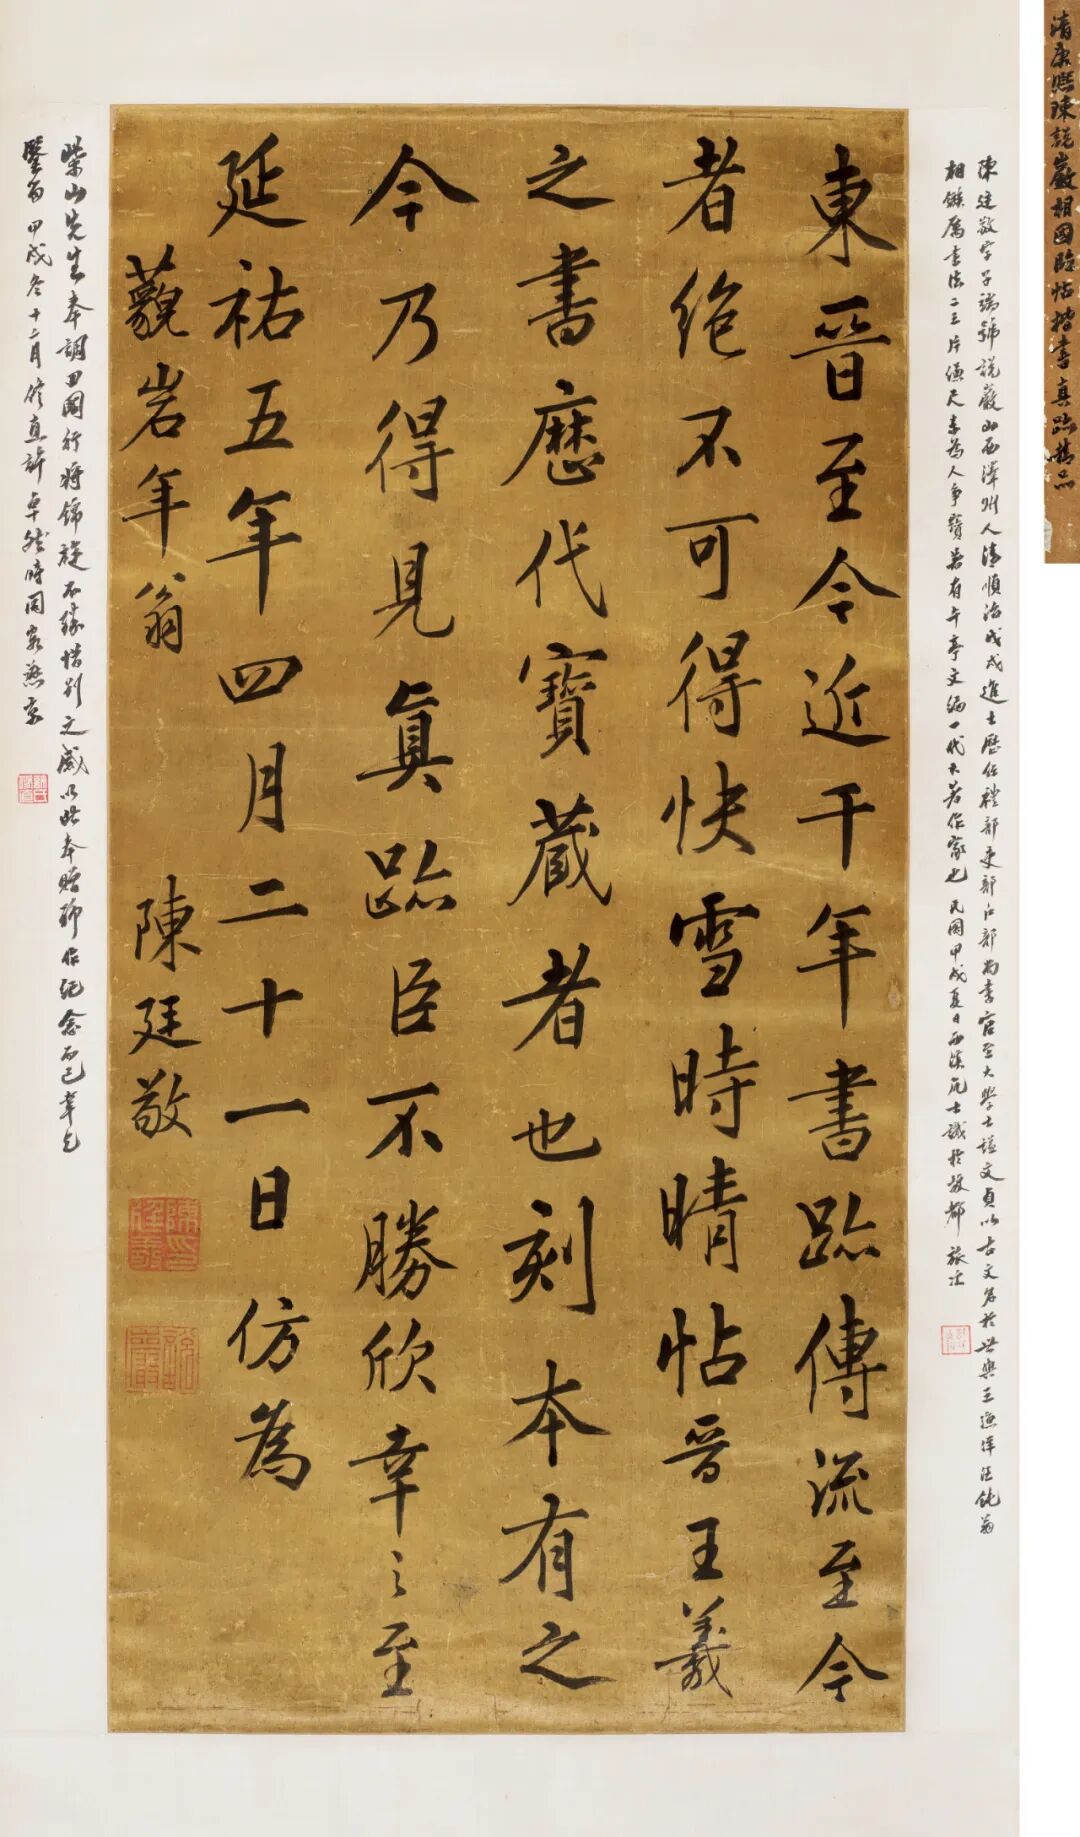 清康熙陳說巖相國臨帖楷書真跡精品
陳廷敬字子端號說巖山西澤州人清順治戊戌進士歷任禮部吏部戶部尚書官至大學士諡文貞以古文名於世與王漁洋汪鈍翁
相鏃厲書法二王片縑尺素為人爭寶著有午亭文編一代大著作家也民國甲戌夏日西溪凡士識於故都旅次
東晉至今近千年書跡傳流至今
者絕不可得快雪時晴帖晉王羲
之書歷代寶藏者也刻本有之
今乃得見真跡臣不勝欣幸之至
延祐五年四月二十一日仿為
藐岩年翁
陳廷敬
陳廷敬印
說巖
柴山先生奉調回國行將錦旋不勝惜別之感以此奉贈聊作紀念而已幸乞
鑒留甲戌冬十二月修直許卓然時同客燕京